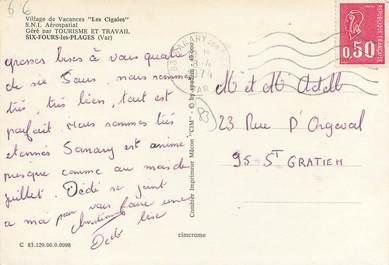 66
Village de Vacances "Les Cigales"
S.N.I. Aérospatial
Géré par TOURISME ET TRAVAIL
SIX-FOURS-les-PLAGES (Var)
grosses bises à vous quatre
de Six Fours nous sommes
très, très bien, tout est
parfait. nous sommes très
étonnés Sanary est animé
presque comme au mois de
juillet. Dédé se joint
a moi pour vous faire une
bise
Christiane
Dédé
C 83.129.00.0.0098
Combier Imprimeur Mâcon "CIM"
cimcrome
83 SANARY
1974
VAR
83
0,50
M et Mme
23 Rue D'Orgeval
95 ST GRATIEN